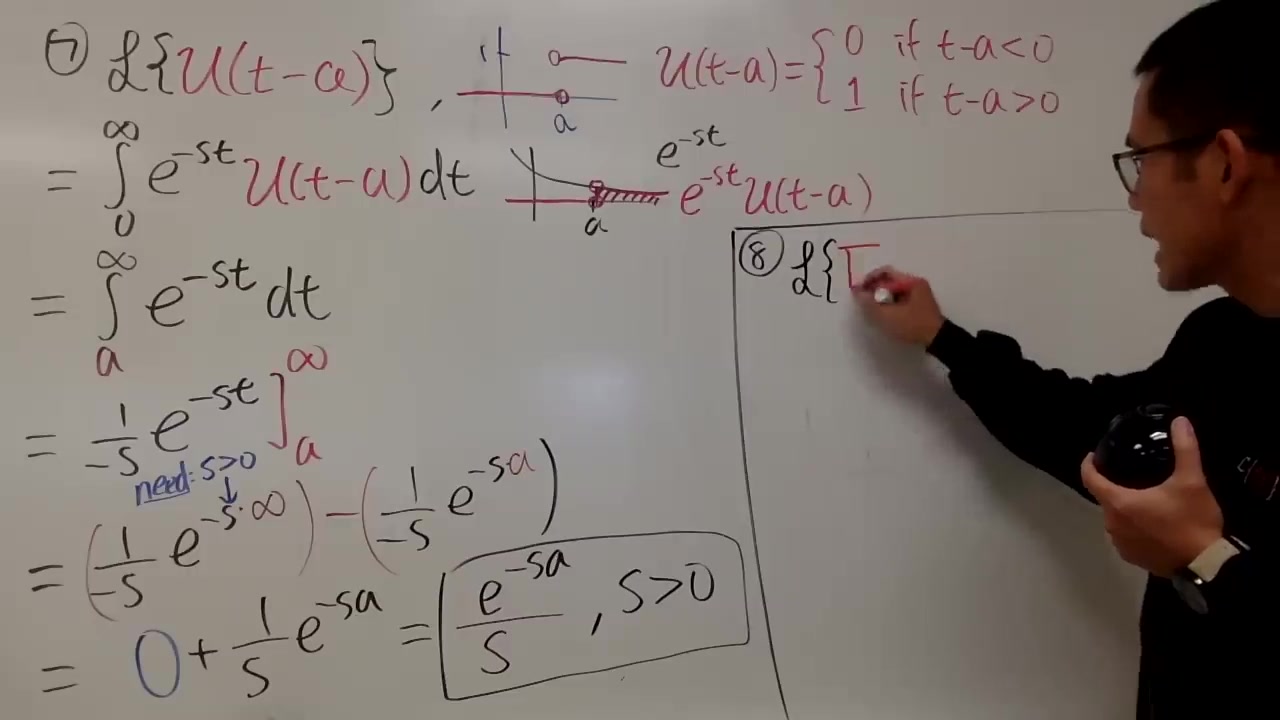 ⑦ ℒ{U(t-a)}, if
a
U(t-a) = { 0 if t-a<0
1 if t-a>0
= ∫₀^∞ e^{-st} U(t-a) dt
e^{-st}
e^{-st} U(t-a)
a
= ∫ₐ^∞ e^{-st} dt
= 1/-s e^{-st} ]ₐ^∞
need: s>0
= (1/-s e^{-s·∞}) - (1/-s e^{-sa})
= 0 + 1/s e^{-sa} = e^{-sa}/s , s>0
⑧ ℒ{